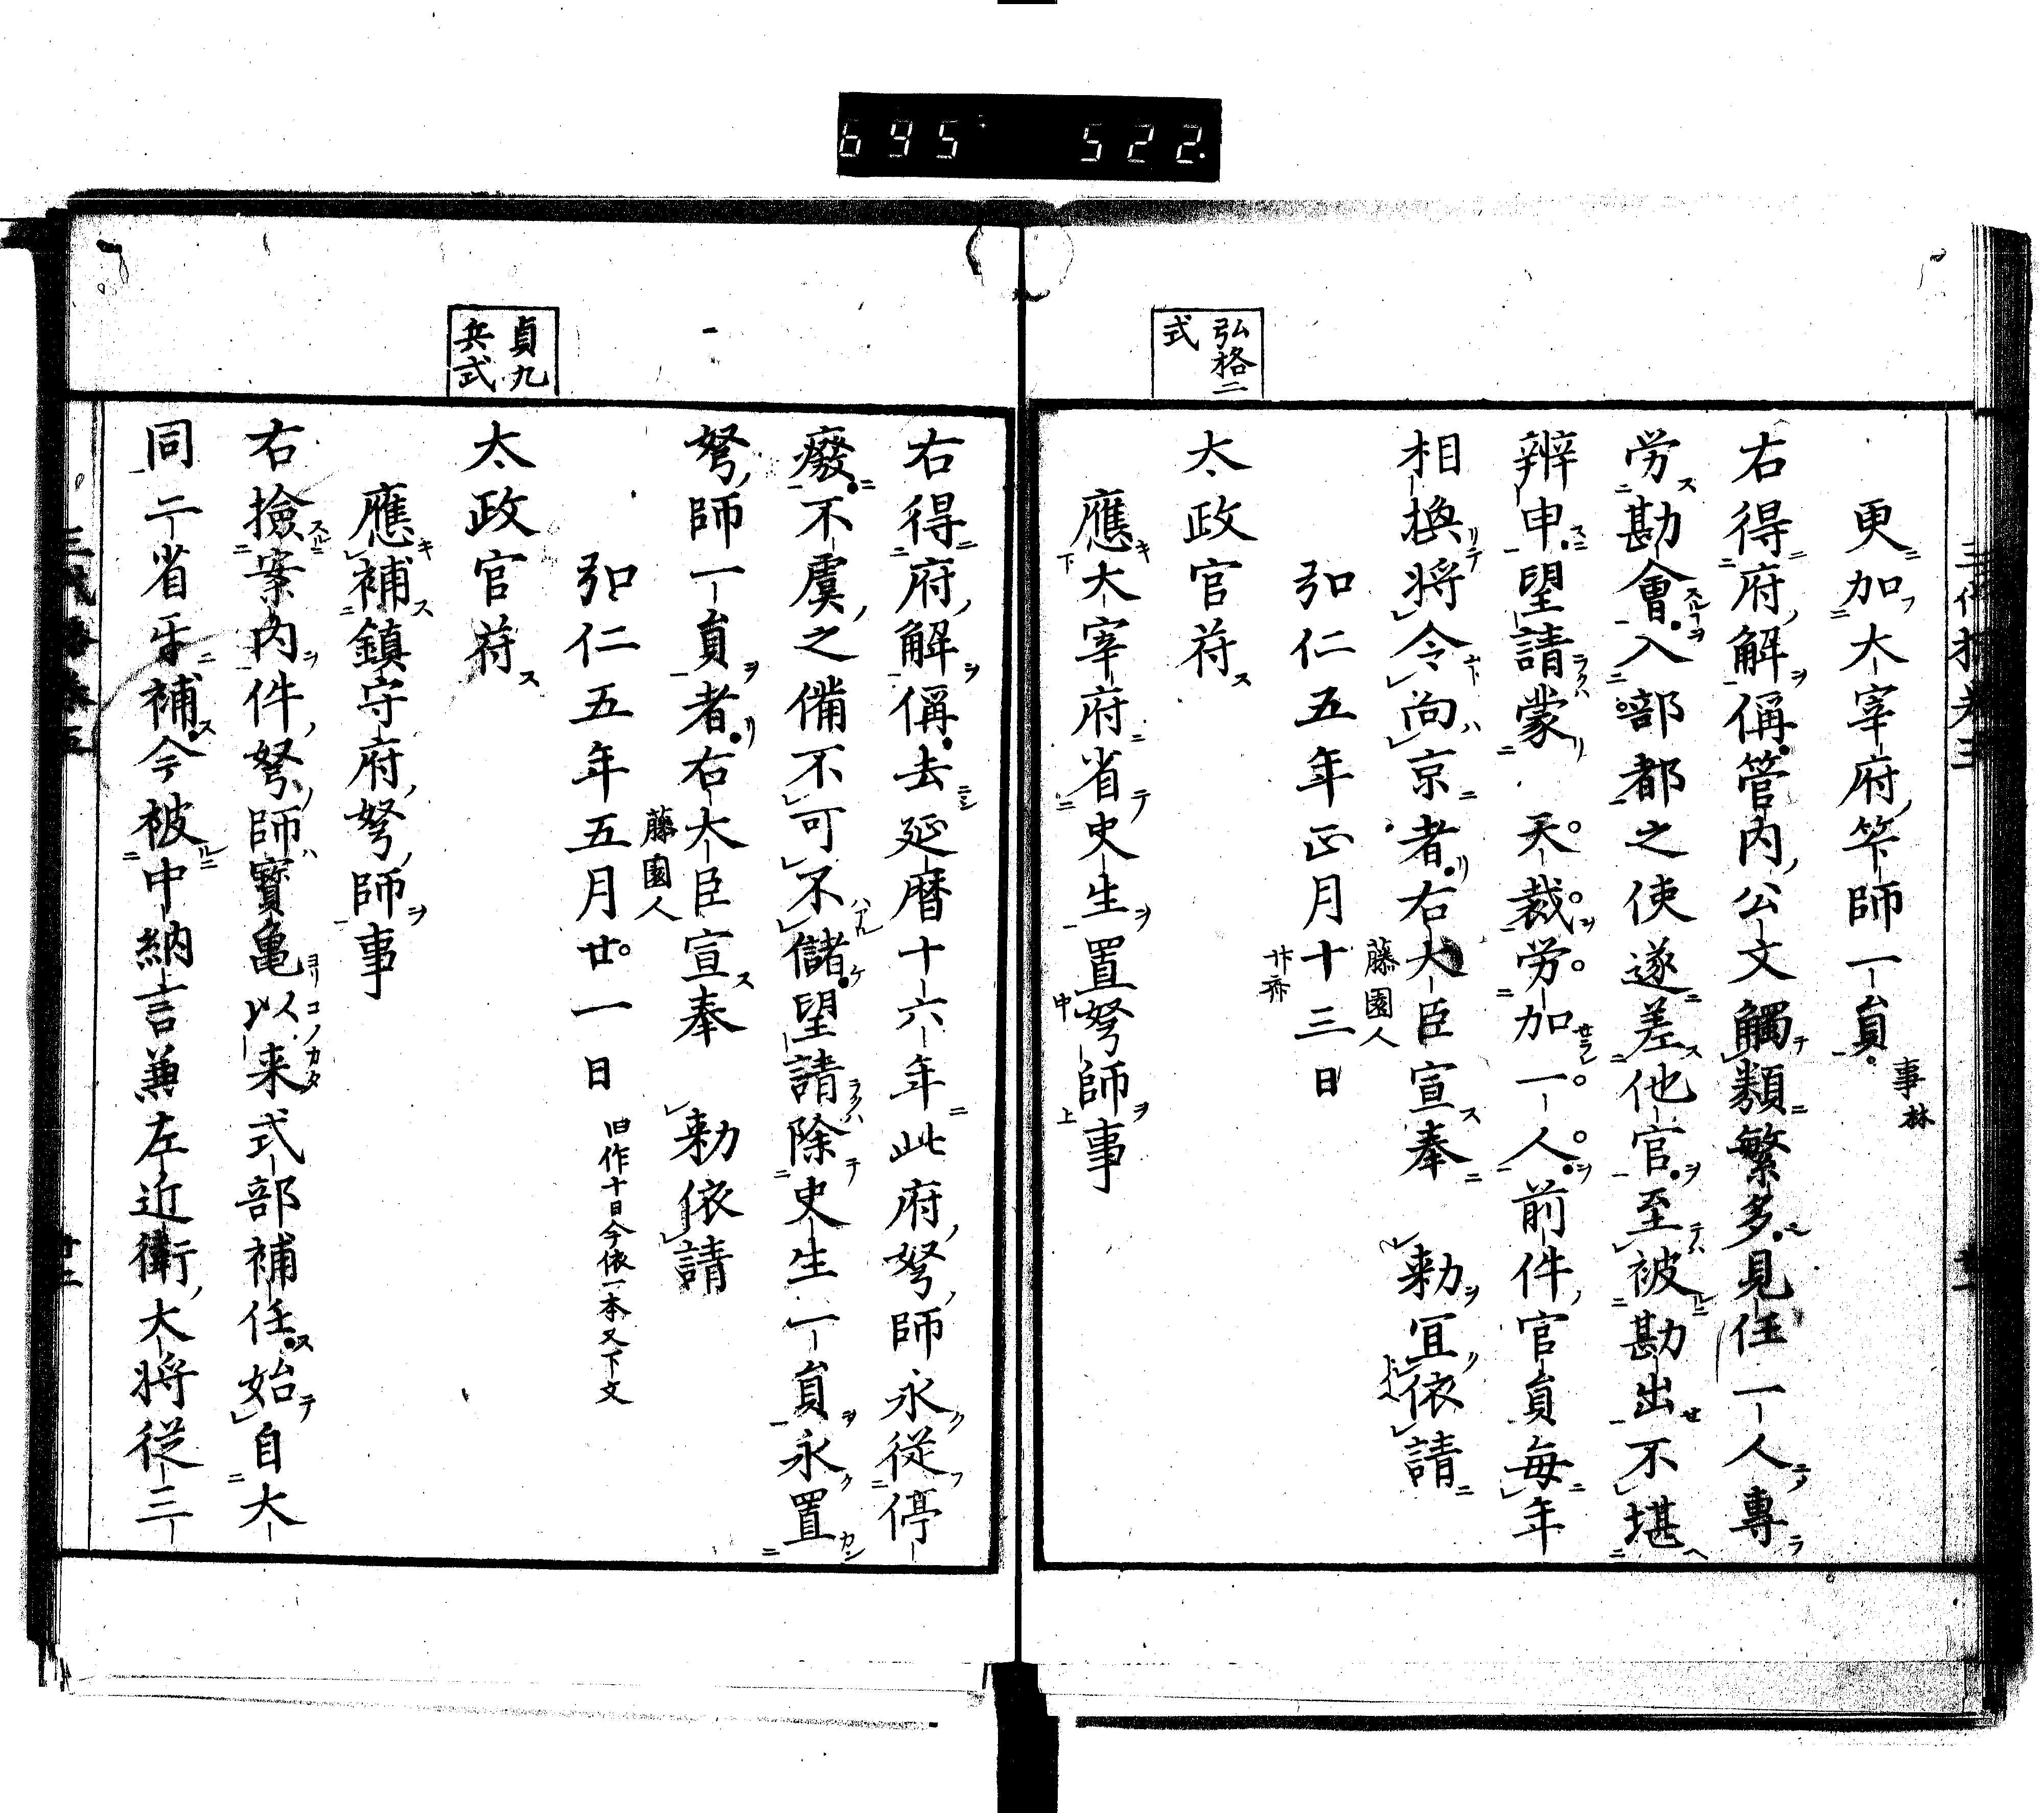 695 522
更加大宰府筭師一貟
事林
右得府解偁管內公文觸類繁多見任一人專
労勘會入部都之使遂差他官至被勘出不堪
辨申望請蒙 天裁労加一人前件官貟每年
相換將令向京者右大臣宣奉 勅冝依請
藤園人
弘仁五年正月十三日
弘格二
式
太政官符ス
應大宰府省史生置弩師事
右得府解偁去延暦十六年此府弩師永從停
廢不虞之備不可不儲望請除史生一貟永置
弩師一貟者右大臣宣奉 勅依請
藤園人
弘仁五年五月廿一日 旧作十日今依一本又下文
貞九
兵式
太政官符ス
應補鎮守府弩師事
右撿案內件弩師寳亀以来式部補任始自大
同二省乐補今被中納言兼左近衛大将従三